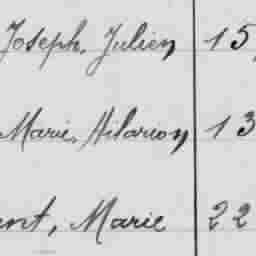 Joseph, Julien 15,
Marie, Hilarion 13
ent, Marie 22